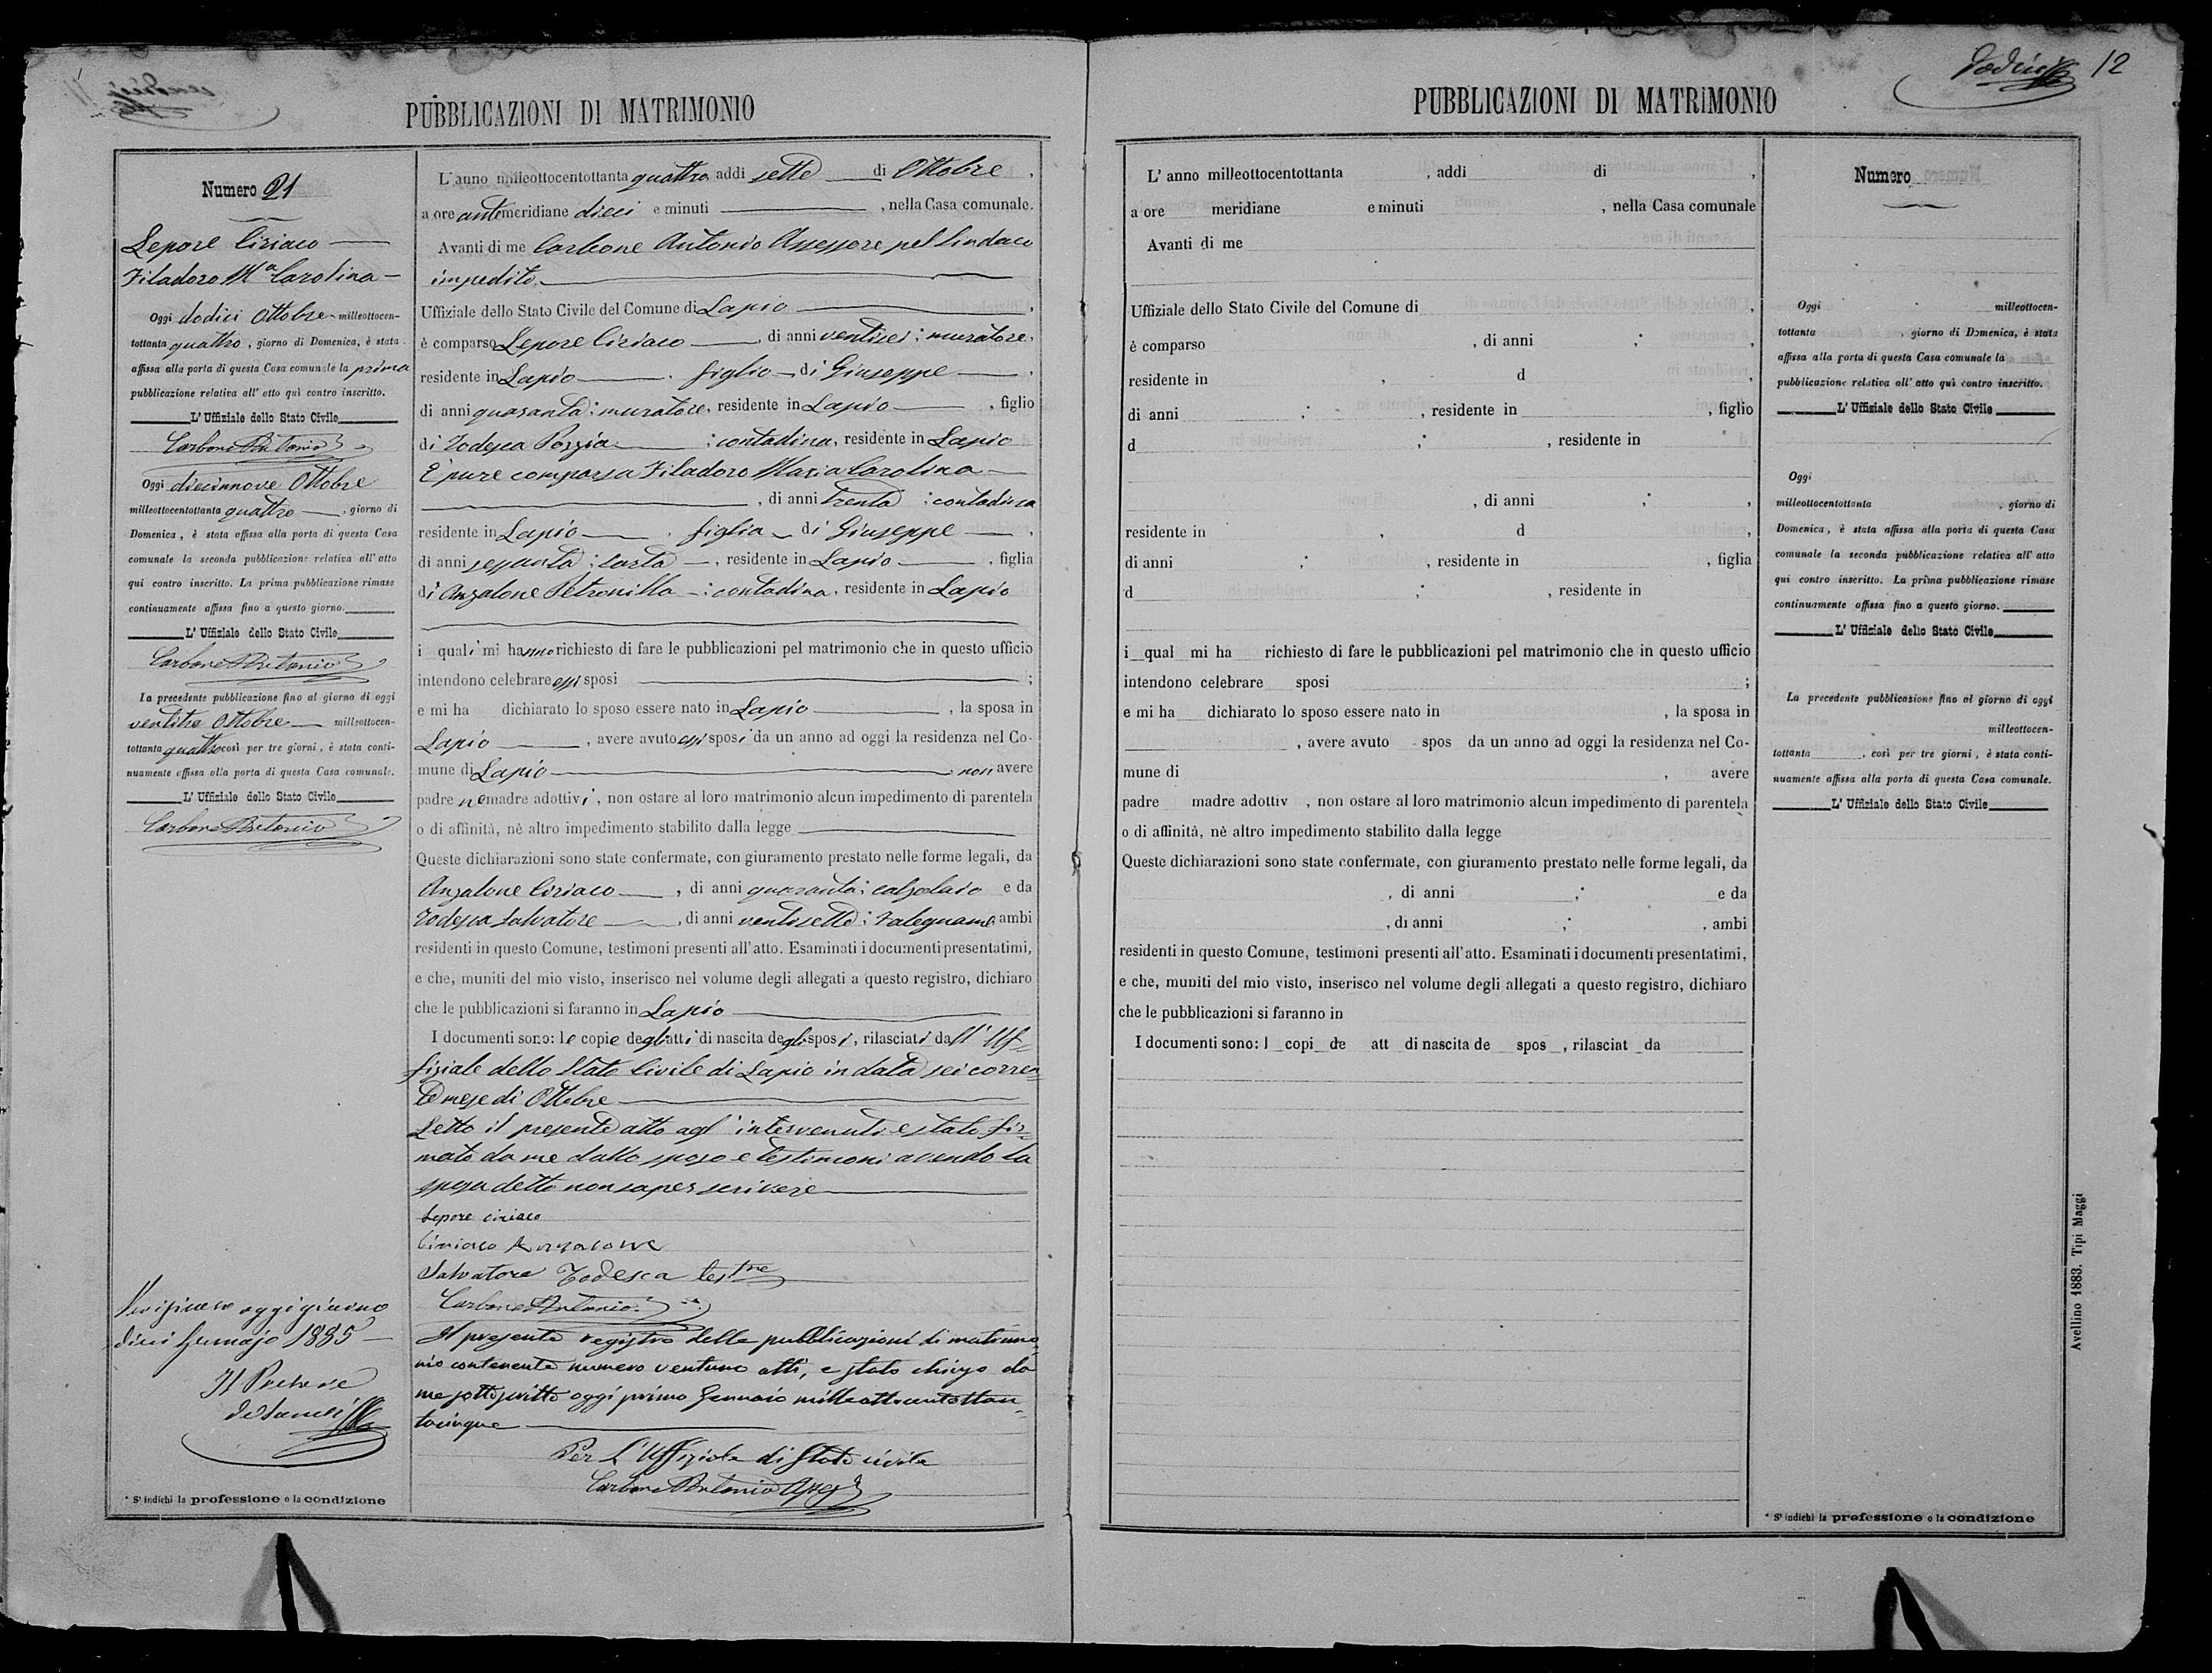 PUBBLICAZIONI DI MATRIMONIO
Numero 21
Lepore Ciriaco
Filadoro Mª Carolina
Oggi dodici Ottobre milleottocen-
tottanta quattro, giorno di Domenica, è stata
affissa alla porta di questa Casa comunale la prima
pubblicazione relativa all' atto quì contro inscritto.
L' Uffiziale dello Stato Civile
Carbone Antonio
Oggi diecinnove Ottobre
milleottocentottanta quattro, giorno di
Domenica, è stata affissa alla porta di questa Casa
comunale la seconda pubblicazione relativa all' atto
qui contro inscritto. La prima pubblicazione rimase
continuamente affissa fino a questo giorno.
L' Uffiziale dello Stato Civile
Carbone Antonio
La precedente pubblicazione fino al giorno di oggi
ventitre Ottobre milleottocen-
tottanta quattro così per tre giorni, è stata conti-
nuamente affissa alla porta di questa Casa comunale.
L' Uffiziale dello Stato Civile
Carbone Antonio
Verificato oggi giorno
dieci Gennajo 1885
Il Pretore
* Si indichi la professione o la condizione
L' anno milleottocentottanta quattro, addi sette di Ottobre,
a ore antemeridiane dieci e minuti , nella Casa comunale.
Avanti di me Carbone Antonio Assessore pel Sindaco
impedito,
Uffiziale dello Stato Civile del Comune di Lapio ,
è comparso Lepore Ciriaco , di anni ventisei ; muratore,
residente in Lapio , figlio di Giuseppe ,
di anni quaranta ; muratore, residente in Lapio , figlio
di Todesca Porzia ; contadina, residente in Lapio
È pure comparsa Filadoro Maria Carolina
, di anni trenta ; contadina
residente in Lapio , figlia di Giuseppe ,
di anni sessanta ; sarto , residente in Lapio , figlia
di Anzalone Petronilla ; contadina, residente in Lapio
i quali mi hanno richiesto di fare le pubblicazioni pel matrimonio che in questo ufficio
intendono celebrare essi sposi ;
e mi ha dichiarato lo sposo essere nato in Lapio , la sposa in
Lapio , avere avuto essi sposi da un anno ad oggi la residenza nel Co-
mune di Lapio , non avere
padre ne madre adottivi, non ostare al loro matrimonio alcun impedimento di parentela
o di affinità, nè altro impedimento stabilito dalla legge
Queste dichiarazioni sono state confermate, con giuramento prestato nelle forme legali, da
Anzalone Ciriaco , di anni quaranta ; calzolaio e da
Todesca Salvatore , di anni ventisette ; Falegname, ambi
residenti in questo Comune, testimoni presenti all'atto. Esaminati i documenti presentatimi,
e che, muniti del mio visto, inserisco nel volume degli allegati a questo registro, dichiaro
che le pubblicazioni si faranno in Lapio
I documenti sono: le copie degli atti di nascita degli sposi, rilasciati dall'Uf-
fiziale dello Stato Civile di Lapio in data sei corren-
te mese di Ottobre
Letto il presente atto agl'intervenuti e stato fir-
mato da me dallo sposo e testimoni avendo la
sposa detto non saper scrivere
Lepore ciriaco
Ciriaco Anzalone
Salvatore Todesca testne
Carbone Antonio
Il presente registro delle pubblicazioni di matrimo-
nio contenente numero ventuno atti, e stato chiuso da
me sottoscritto oggi primo Gennaio milleottocentottan-
tacinque
Per L'Uffiziale di Stato civile
Carbone Antonio Asses
12
PUBBLICAZIONI DI MATRIMONIO
L' anno milleottocentottanta , addi di ,
a ore meridiane e minuti , nella Casa comunale
Avanti di me
Uffiziale dello Stato Civile del Comune di
è comparso , di anni ; ,
residente in , d ,
di anni ; , residente in , figlio
d ; , residente in
, di anni ; ,
residente in , d ,
di anni ; , residente in , figlia
d ; , residente in
i qual mi ha richiesto di fare le pubblicazioni pel matrimonio che in questo ufficio
intendono celebrare sposi ;
e mi ha dichiarato lo sposo essere nato in , la sposa in
, avere avuto spos da un anno ad oggi la residenza nel Co-
mune di , avere
padre madre adottiv , non ostare al loro matrimonio alcun impedimento di parentela
o di affinità, nè altro impedimento stabilito dalla legge
Queste dichiarazioni sono state confermate, con giuramento prestato nelle forme legali, da
, di anni ; e da
, di anni ; , ambi
residenti in questo Comune, testimoni presenti all'atto. Esaminati i documenti presentatimi,
e che, muniti del mio visto, inserisco nel volume degli allegati a questo registro, dichiaro
che le pubblicazioni si faranno in
I documenti sono: l copi de att di nascita de spos , rilasciat da
Numero
Oggi milleottocen-
tottanta , giorno di Domenica, è stata
affissa alla porta di questa Casa comunale la
pubblicazione relativa all' atto quì contro inscritto.
L' Uffiziale dello Stato Civile
Oggi
milleottocentottanta , giorno di
Domenica, è stata affissa alla porta di questa Casa
comunale la seconda pubblicazione relativa all' atto
qui contro inscritto. La prima pubblicazione rimase
continuamente affissa fino a questo giorno.
L' Uffiziale dello Stato Civile
La precedente pubblicazione fino al giorno di oggi
milleottocen-
tottanta , così per tre giorni, è stata conti-
nuamente affissa alla porta di questa Casa comunale.
L' Uffiziale dello Stato Civile
* Si indichi la professione o la condizione
Avellino 1883. Tipi Maggi